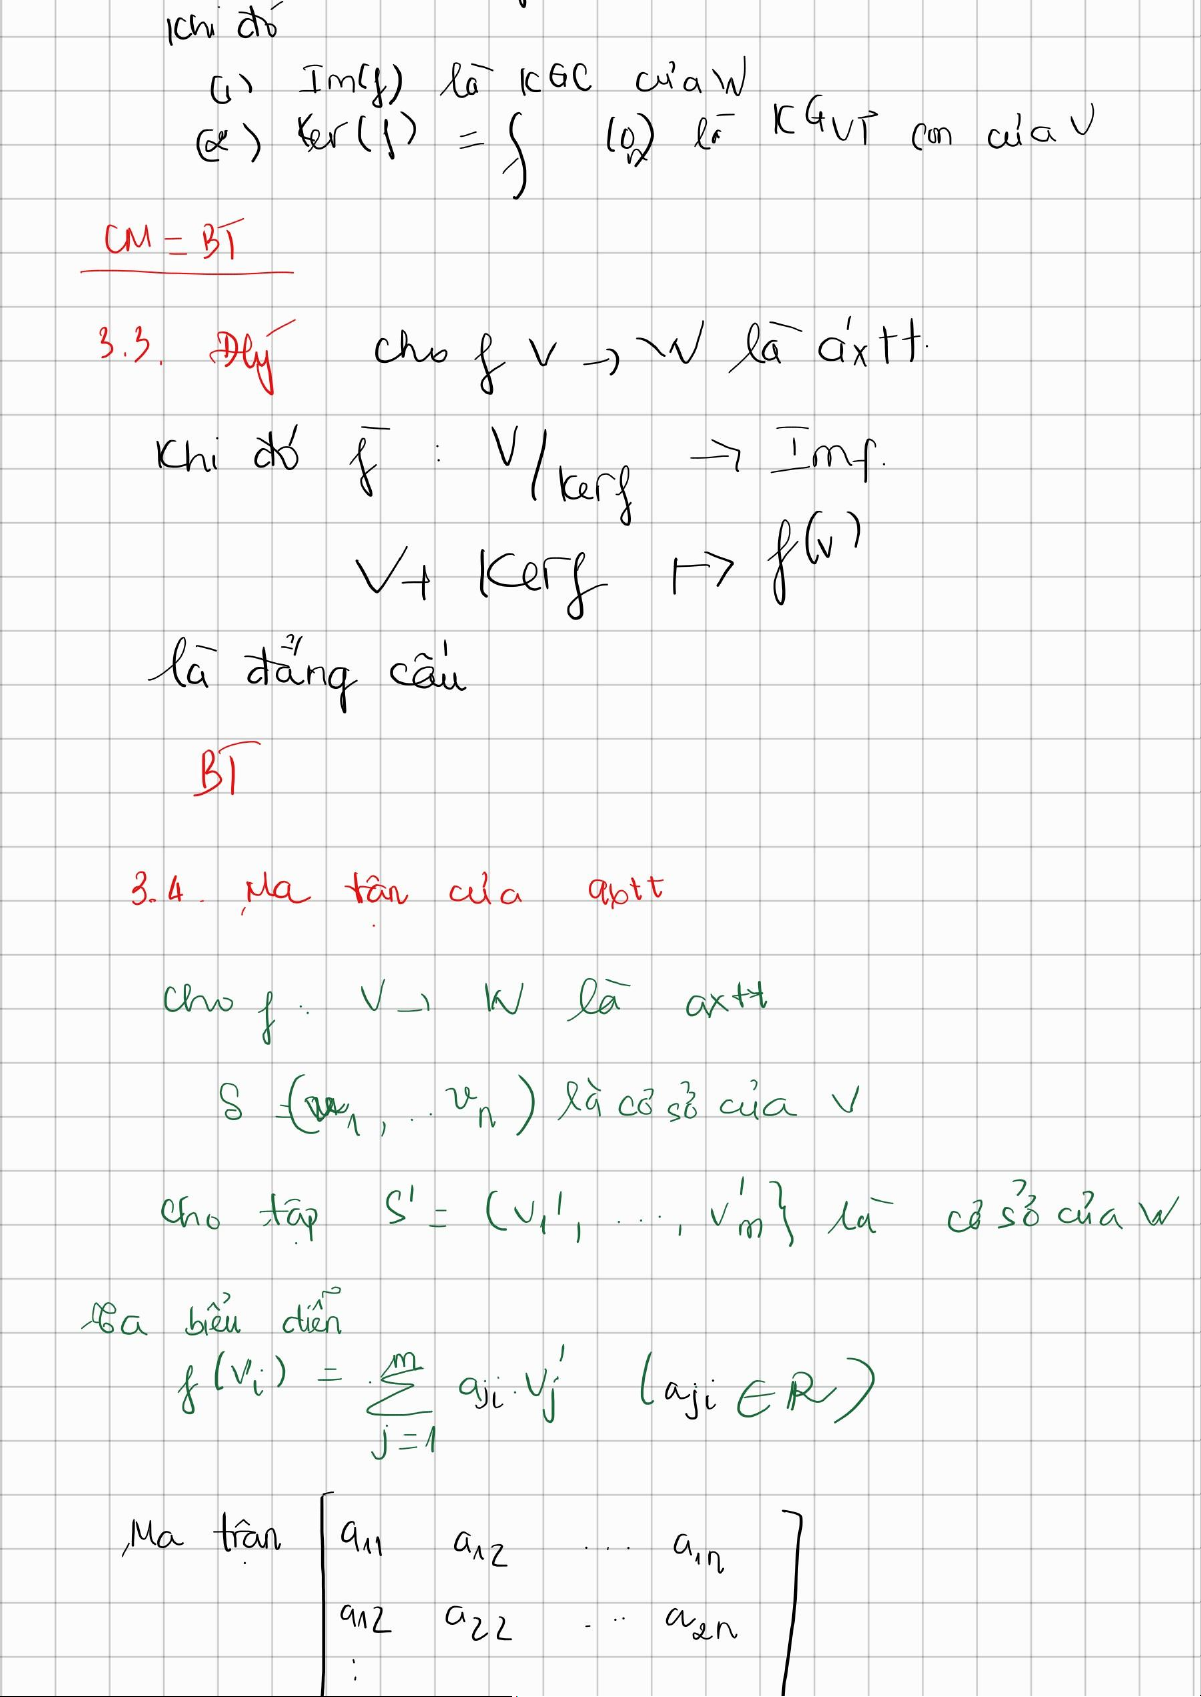 Khi đó
(1) Im(f) là KGC của W
(2) Ker(f) = f (0) là KGVT con của V
CM = BT
3.3. Đlý cho f V → W là áxtt.
Khi đó f̄ : V/Kerf → Imf.
V + Kerf ↦ f(v)
là đẳng cấu
BT
3.4. Ma tận của aƅtt
cho f : V → W là axtt
S (v₁, .. vₙ) là cơ sở của V
cho tập S' = (v₁', ..., v'ₘ} là cở sở của W
Ta biểu diễn
f(vᵢ) = ∑ⱼ₌₁ᵐ aⱼᵢ . vⱼ' (aⱼᵢ ∈ R)
Ma trận [ a₁₁ a₁₂ ... a₁ₙ ]
a₁₂ a₂₂ ... a₂ₙ
⋮